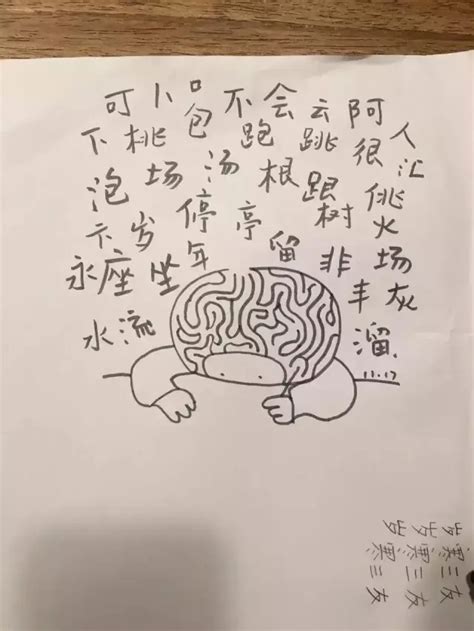 可卜口不会云阿
下桃包跑跳很人
泡场汤根跟佻汇
卞岁停亭树火
永座坐年留非场
丰灰
水流溜
11.17
岁寒三友
岁寒二友
岁寒三友